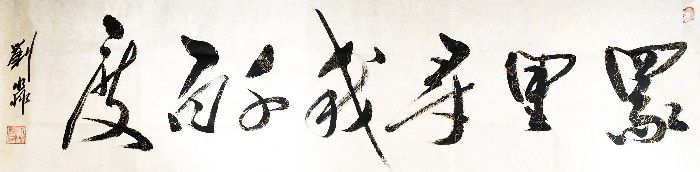 眾里尋我千百度
劉